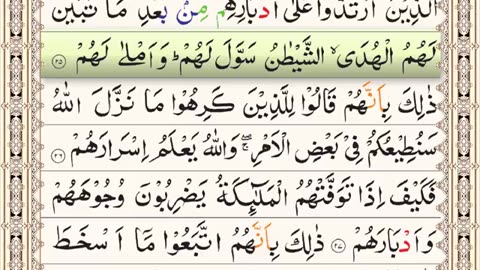 الَّذِيۡنَ ارۡتَدُّوۡا عَلٰٓى اَدۡبَارِهِمۡ مِّنۡۢ بَعۡدِ مَا تَبَيَّنَ
لَهُمُ الۡهُدَى ۙ الشَّيۡطٰنُ سَوَّلَ لَهُمۡ ؕ وَ اَمۡلٰى لَهُمۡ ﴿۲۵﴾
ذٰلِكَ بِاَنَّهُمۡ قَالُوۡا لِلَّذِيۡنَ كَرِهُوۡا مَا نَزَّلَ اللّٰهُ
سَنُطِيۡعُكُمۡ فِىۡ بَعۡضِ الۡاَمۡرِ ۖۚ وَاللّٰهُ يَعۡلَمُ اِسۡرَارَهُمۡ ﴿۲۶﴾
فَكَيۡفَ اِذَا تَوَفَّتۡهُمُ الۡمَلٰٓٮِٕكَةُ يَضۡرِبُوۡنَ وُجُوۡهَهُمۡ
وَ اَدۡبَارَهُمۡ ﴿۲۷﴾ ذٰلِكَ بِاَنَّهُمُ اتَّبَعُوۡا مَاۤ اَسۡخَطَ